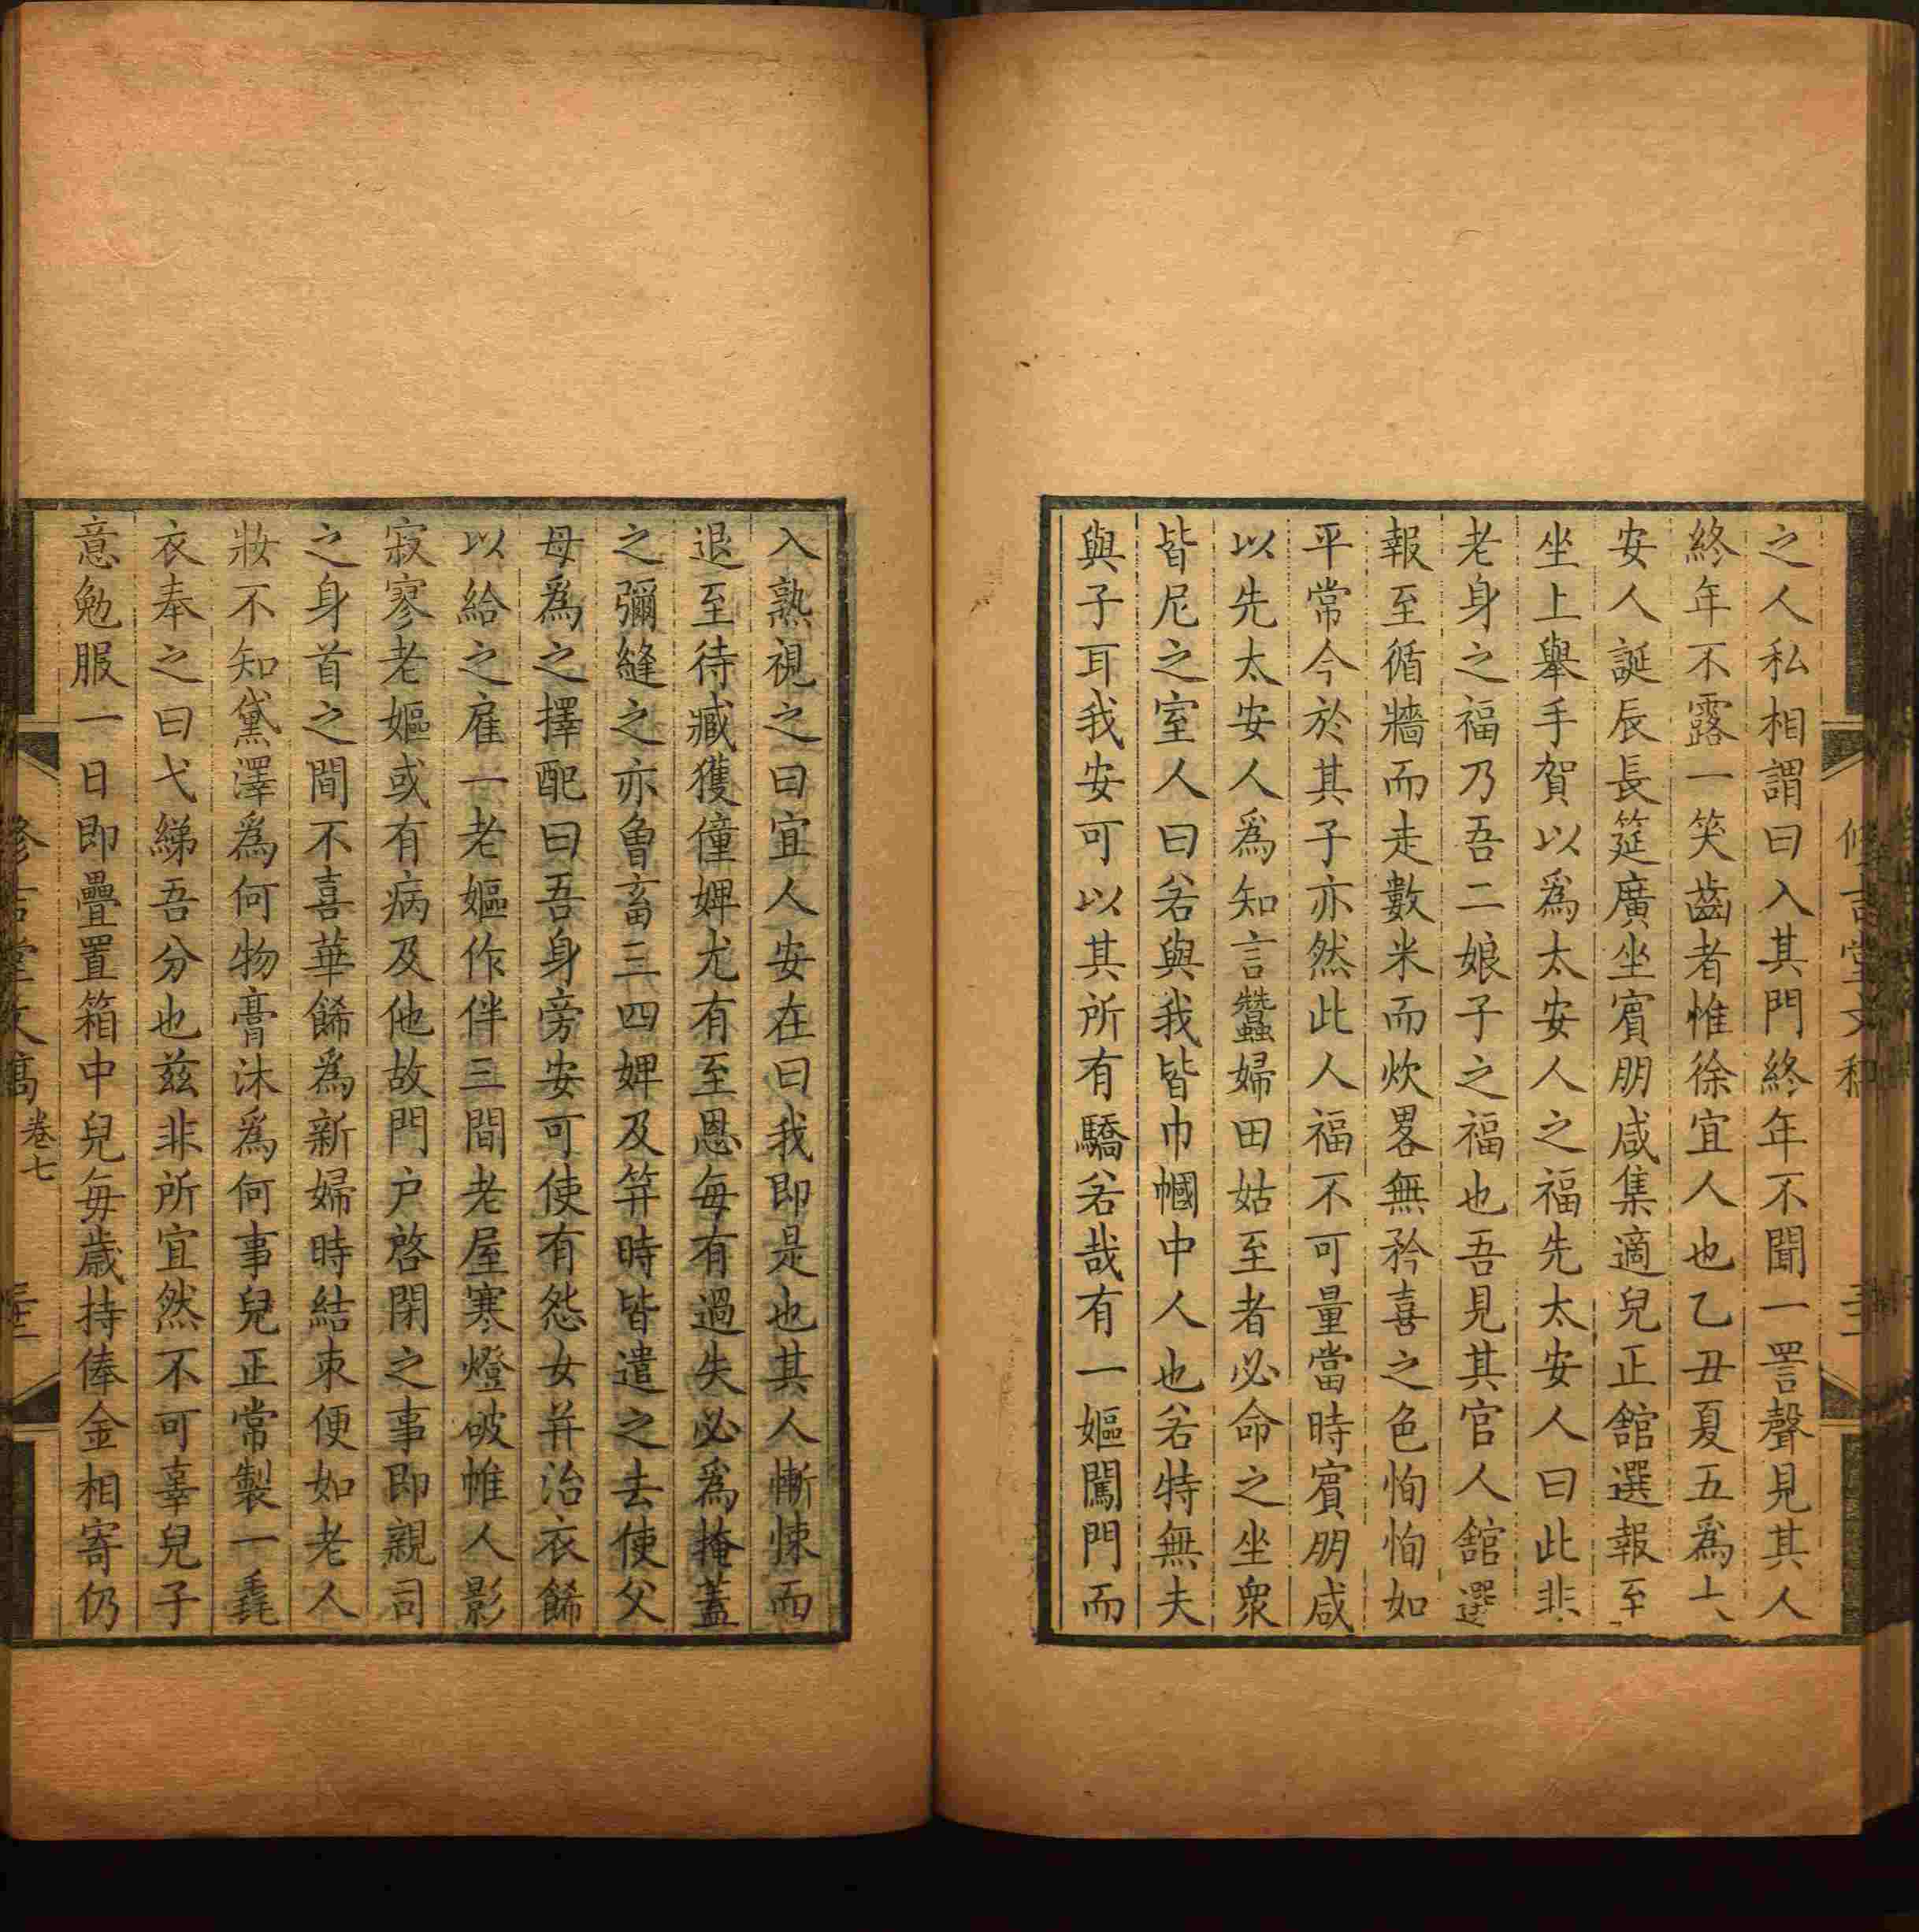 之人私相謂曰入其門終年不聞一詈聲見其人
終年不露一笑齒者惟徐宜人也乙丑夏五為
安人誕辰長筵廣坐賓朋咸集適兒正舘選報至
坐上舉手賀以為太安人之福先太安人曰此非
老身之福乃吾二娘子之福也吾見其官人舘選
報至循牆而走數米而炊畧無矜喜之色恂恂如
平常今於其子亦然此人福不可量當時賓朋咸
以先太安人為知言蠶婦田姑至者必命之坐衆
皆尼之室人曰若與我皆巾幗中人也若特無夫
與子耳我安可以其所有驕若哉有一嫗闖門而
入熟視之曰宜人安在曰我即是也其人慚悚而
退至待臧獲僮婢尤有至恩每有過失必為掩蓋
之彌縫之亦曾畜三四婢及笄時皆遣之去使父
母爲之擇配曰吾身旁安可使有怨女并治衣餙
以給之雇一老嫗作伴三間老屋寒燈破帷人影
寂寥老嫗或有病及他故門户啓閉之事即親司
之身首之間不喜華餙為新婦時結束便如老人
妝不知黛澤爲何物膏沐爲何事兒正常製一毳
衣奉之曰弋綈吾分也兹非所宜然不可辜兒子
意勉服一日即疊置箱中兒每歲持俸金相寄仍
卷七